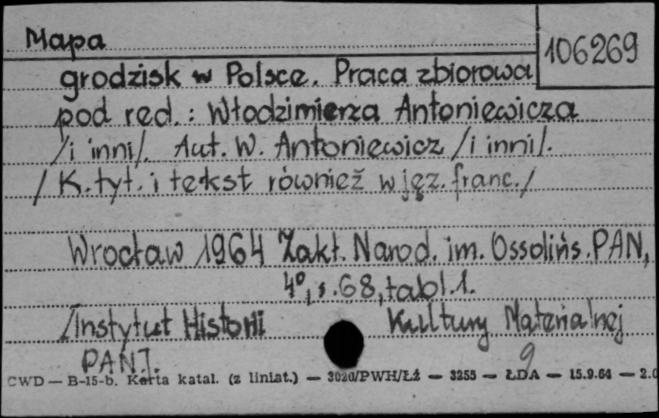 Mapa
106269
grodzisk w Polsce. Praca zbiorowa
pod red.: Włodzimierza Antoniewicza
/i inni/. Aut. W. Antoniewicz /i inni/.
/K. tyt. i tekst również w jęz. franc./
Wrocław 1964 Zakł. Narod. im. Ossolińs. PAN,
4°, s. 68, tabl. 1.
/Instytut Historii Kultury Materialnej
PAN/. 9
CWD — B-15-b. Karta katal. (z liniat.) — 3020/PWH/Łż — 3255 — ŁDA — 15.9.64 — 2.0